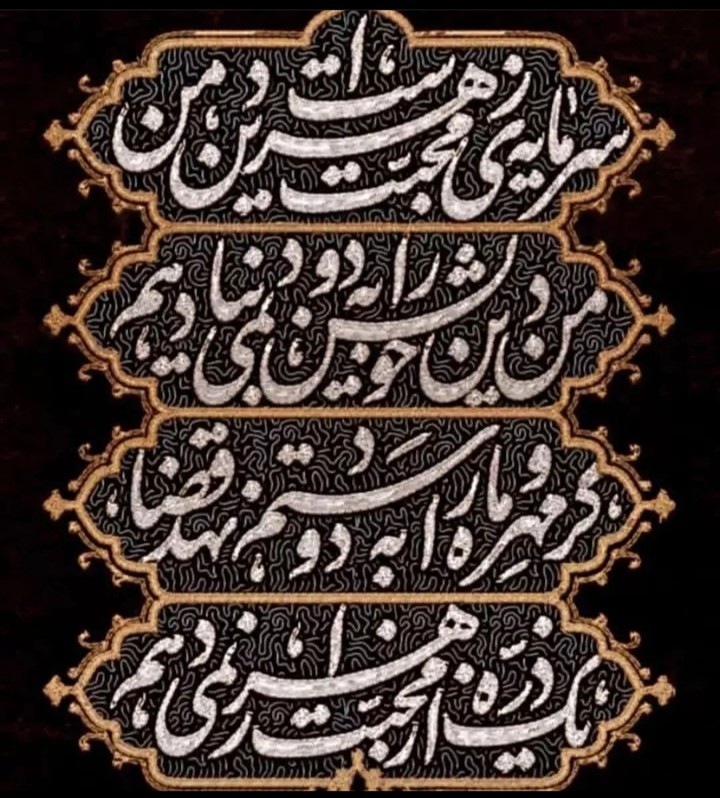 سرمایه‌ی محبت زهراست دین من
من دین خویش را به دو دنیا نمی‌دهم
گر مهر و ماه را به دو دستم نهد قضا
یک ذره از محبت زهرا نمی‌دهم